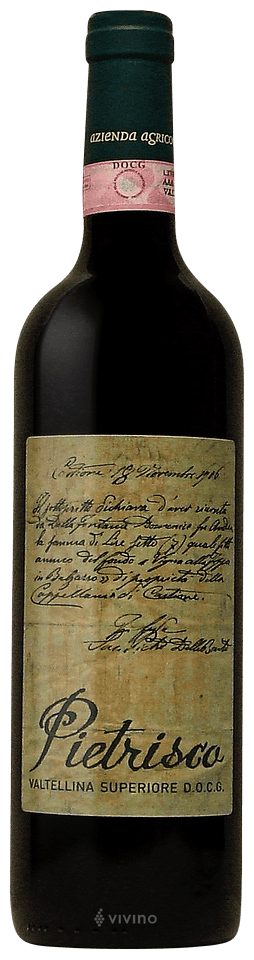 AZIENDA AGRICO
DOCG
Castione, 18 Novembre 1916
Il sottoscritto dichiara d'aver ricevuto
da Dalla Fontana Domenico fu Andrea
la somma di Lire sette (7) quale fitto
annuo del fondo a Vigna alla
in di proprietà della
Cappellania di Castione.
In fede
Pietrisco
VALTELLINA SUPERIORE D.O.C.G.
VIVINO